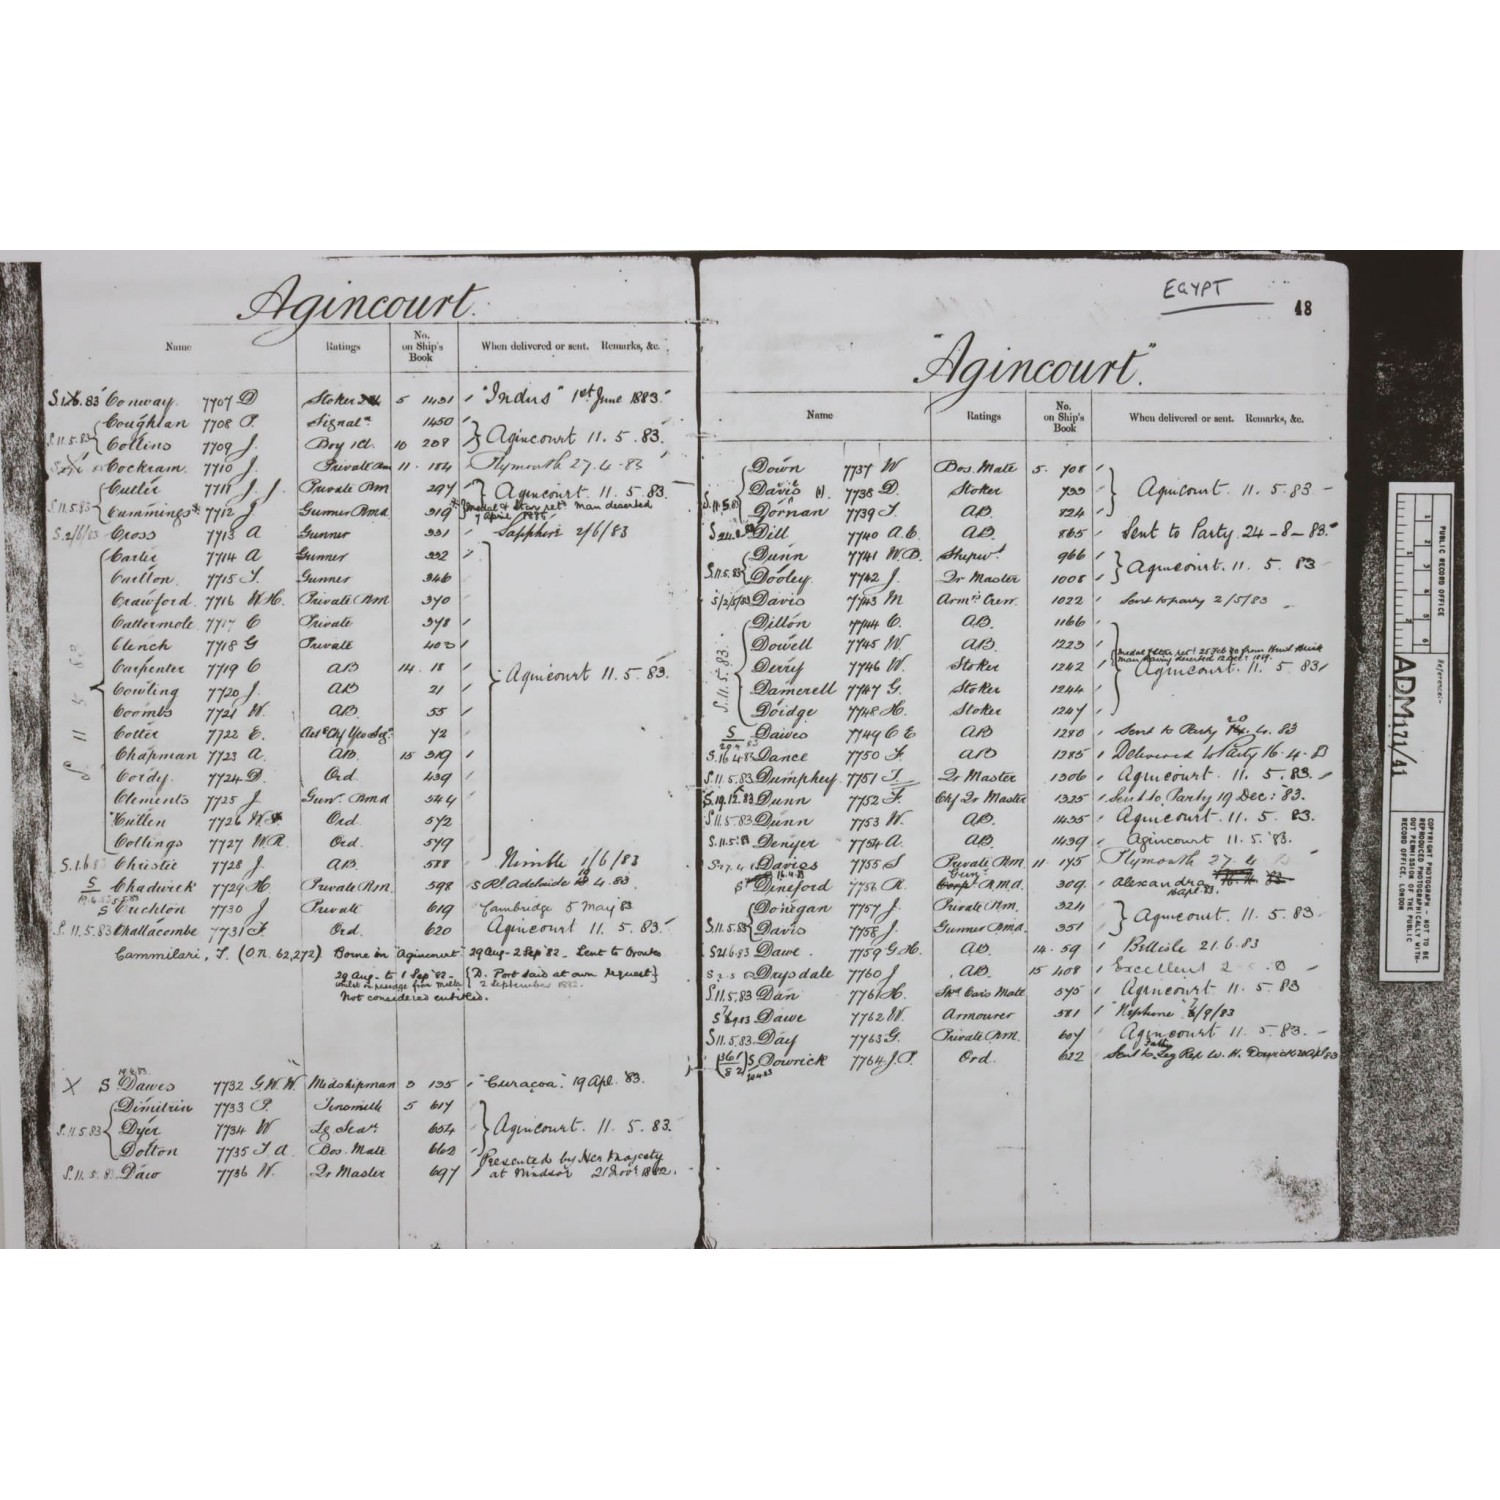 Agincourt.
Name Ratings No. on Ship's Book When delivered or sent. Remarks, &c.
S.1.6.83 Conway. 7707 D Stoker 5 1431 "Indus" 1st June 1883.
Coughlan 7708 P. Signaln 1450
S.11.5.83 Collins 7709 J. Boy 1Cl. 10 208 Agincourt 11.5.83.
Cockram. 7710 J. Private RM 11 184 Plymouth 27.4.83
Cutler 7711 J J. Private RM 297 Agincourt. 11.5.83.
S.11.5.83 Cummings 7712 J Gunner RMA 319 Medal & Star retd man deserted 7 April
S.2/6/83 Cross 7713 A Gunner 331 Sapphire 2/6/83
Carlie 7714 A Gunner 332
Carlton. 7715 T. Gunner 346
Crawford. 7716 W.H. Private RM 370
Cattermole. 7717 C Private 378
Clench 7718 G Private 403
Carpenter 7719 C AB 14. 18 Agincourt 11.5.83.
Cowling 7720 J. AB 21
Coombs 7721 W. AB. 55
Cotter 7722 E. 72
Chapman 7723 A. AB. 15 319
Cordy. 7724 D. Ord. 439
Clements 7725 J Gunr. RMA 544
Cullen 7726 W. Ord. 572
Collings 7727 W.R. Ord. 579
S.1.6.8 Christie 7728 J. AB. 588 Nimble 1/6/83
S Chadwick 7729 H. Private RM. 598 Rl Adelaide 4.83.
S Crichton 7730 J Private 619 Cambridge 5 May 83
S.11.5.83 Challacombe 7731 F. Ord. 620 Agincourt 11.5.83.
Cammilari, T. (O.N. 62,272) Borne in "Agincourt" 29 Aug - 2 Sep '82 - Sent to Orontes
29 Aug - to 1 Sep '82 - {D. Port Said at own request}
whilst on passage from Malta 2 September 1882.
Not considered entitled.
X S Dawes 7732 G.W.W. Midshipman 3 135 "Curaçoa". 19 Apl. '83.
Dimitrin 7733 P. 5 617
S.11.5.83 Dyer 7734 W Lg Sean. 654 Agincourt. 11.5.83.
Dolton 7735 T.A. Bos. Mate 662
S.11.5.83 Daw 7736 W. Qr Master 697 Presented by Her Majesty at Windsor 21 Novr 1882.
EGYPT
48
"Agincourt".
Name Ratings No. on Ship's Book When delivered or sent. Remarks, &c.
Down 7737 W Bos. Mate 5. 708
S.11.5.83 Davis 7738 D. Stoker 733 Agincourt. 11.5.83
Dornan 7739 T. AB. 824
S.24.8.83 Dill 7740 A.E. AB. 865 Sent to Party. 24-8-83.
Dunn 7741 W.D. Shipwt. 966
S.11.5.83 Dooley. 7742 J. Qr Master 1008 Agincourt. 11.5.83
S/2/5/83 Davis 7743 M Armrs Crew. 1022 Sent to party 2/5/83
Dillon 7744 C. AB. 1166
Dowell 7745 W. AB. 1223
S.11.5.83. Derry 7746 W. Stoker 1242 Medal & Star retd. 25 Feb 90 from man having deserted 12 Oct 1889.
Damerell 7747 G. Stoker 1244 Agincourt. 11.5.83
Doidge 7748 H. Stoker 1247
S Dawes 7749 C E AB 1280 Sent to Party 20.4.83
S.16.4.83 Dance 7750 F. AB 1285 Delivered to Party 16.4.83
S.11.5.83 Dumphey. 7751 T. Qr Master 1306 Agincourt. 11.5.83.
S.19.12.83 Dunn 7752 F. Chf Qr Master 1325 Sent to Party 19 Dec: '83.
S.11.5.83 Dunn 7753 W. AB. 1435 Agincourt. 11.5.83.
S.11.5.83 Denyer 7754 A. AB. 1439 Agincourt 11.5.83.
Davies 7755 S Private RM. 11 175 Plymouth 27.4
Dineford 7756 R. Gunr. RMA. 309. Alexandra 16 Apl. 83.
Donegan 7757 J. Private RM. 324
S.11.5.83 Davis 7758 J. Gunner RMA. 351 Agincourt. 11.5.83
S.21.6.83 Dawe. 7759 G.H. AB. 14. 59 Bellisle 21.6.83
Drysdale 7760 J AB. 15 408 Excellent
S.11.5.83 Dan 7761 H. 575 Agincourt. 11.5.83
Dawe 7762 W. Armourer 581 "Neptune". 7/9/83
S.11.5.83. Day 7763 G. Private RM. 607 Agincourt 11.5.83.
S Dowrick 7764 J.P. Ord. 622 Sent to Father W. H. Dowrick 20 Apl 83
PUBLIC RECORD OFFICE
Reference:-
ADM 171/41
COPYRIGHT PHOTOGRAPH - NOT TO BE REPRODUCED PHOTOGRAPHICALLY WITHOUT PERMISSION OF THE PUBLIC RECORD OFFICE, LONDON